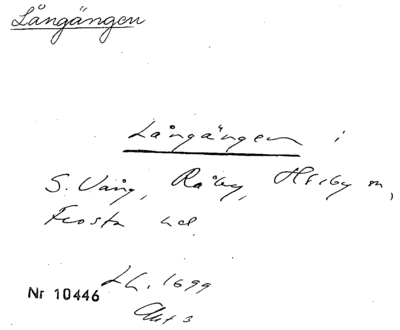 Långängen
Långängen i
S. Vång, Råby, m,
Frosta hd
Nr 10446
LH. 1699
Akt 3